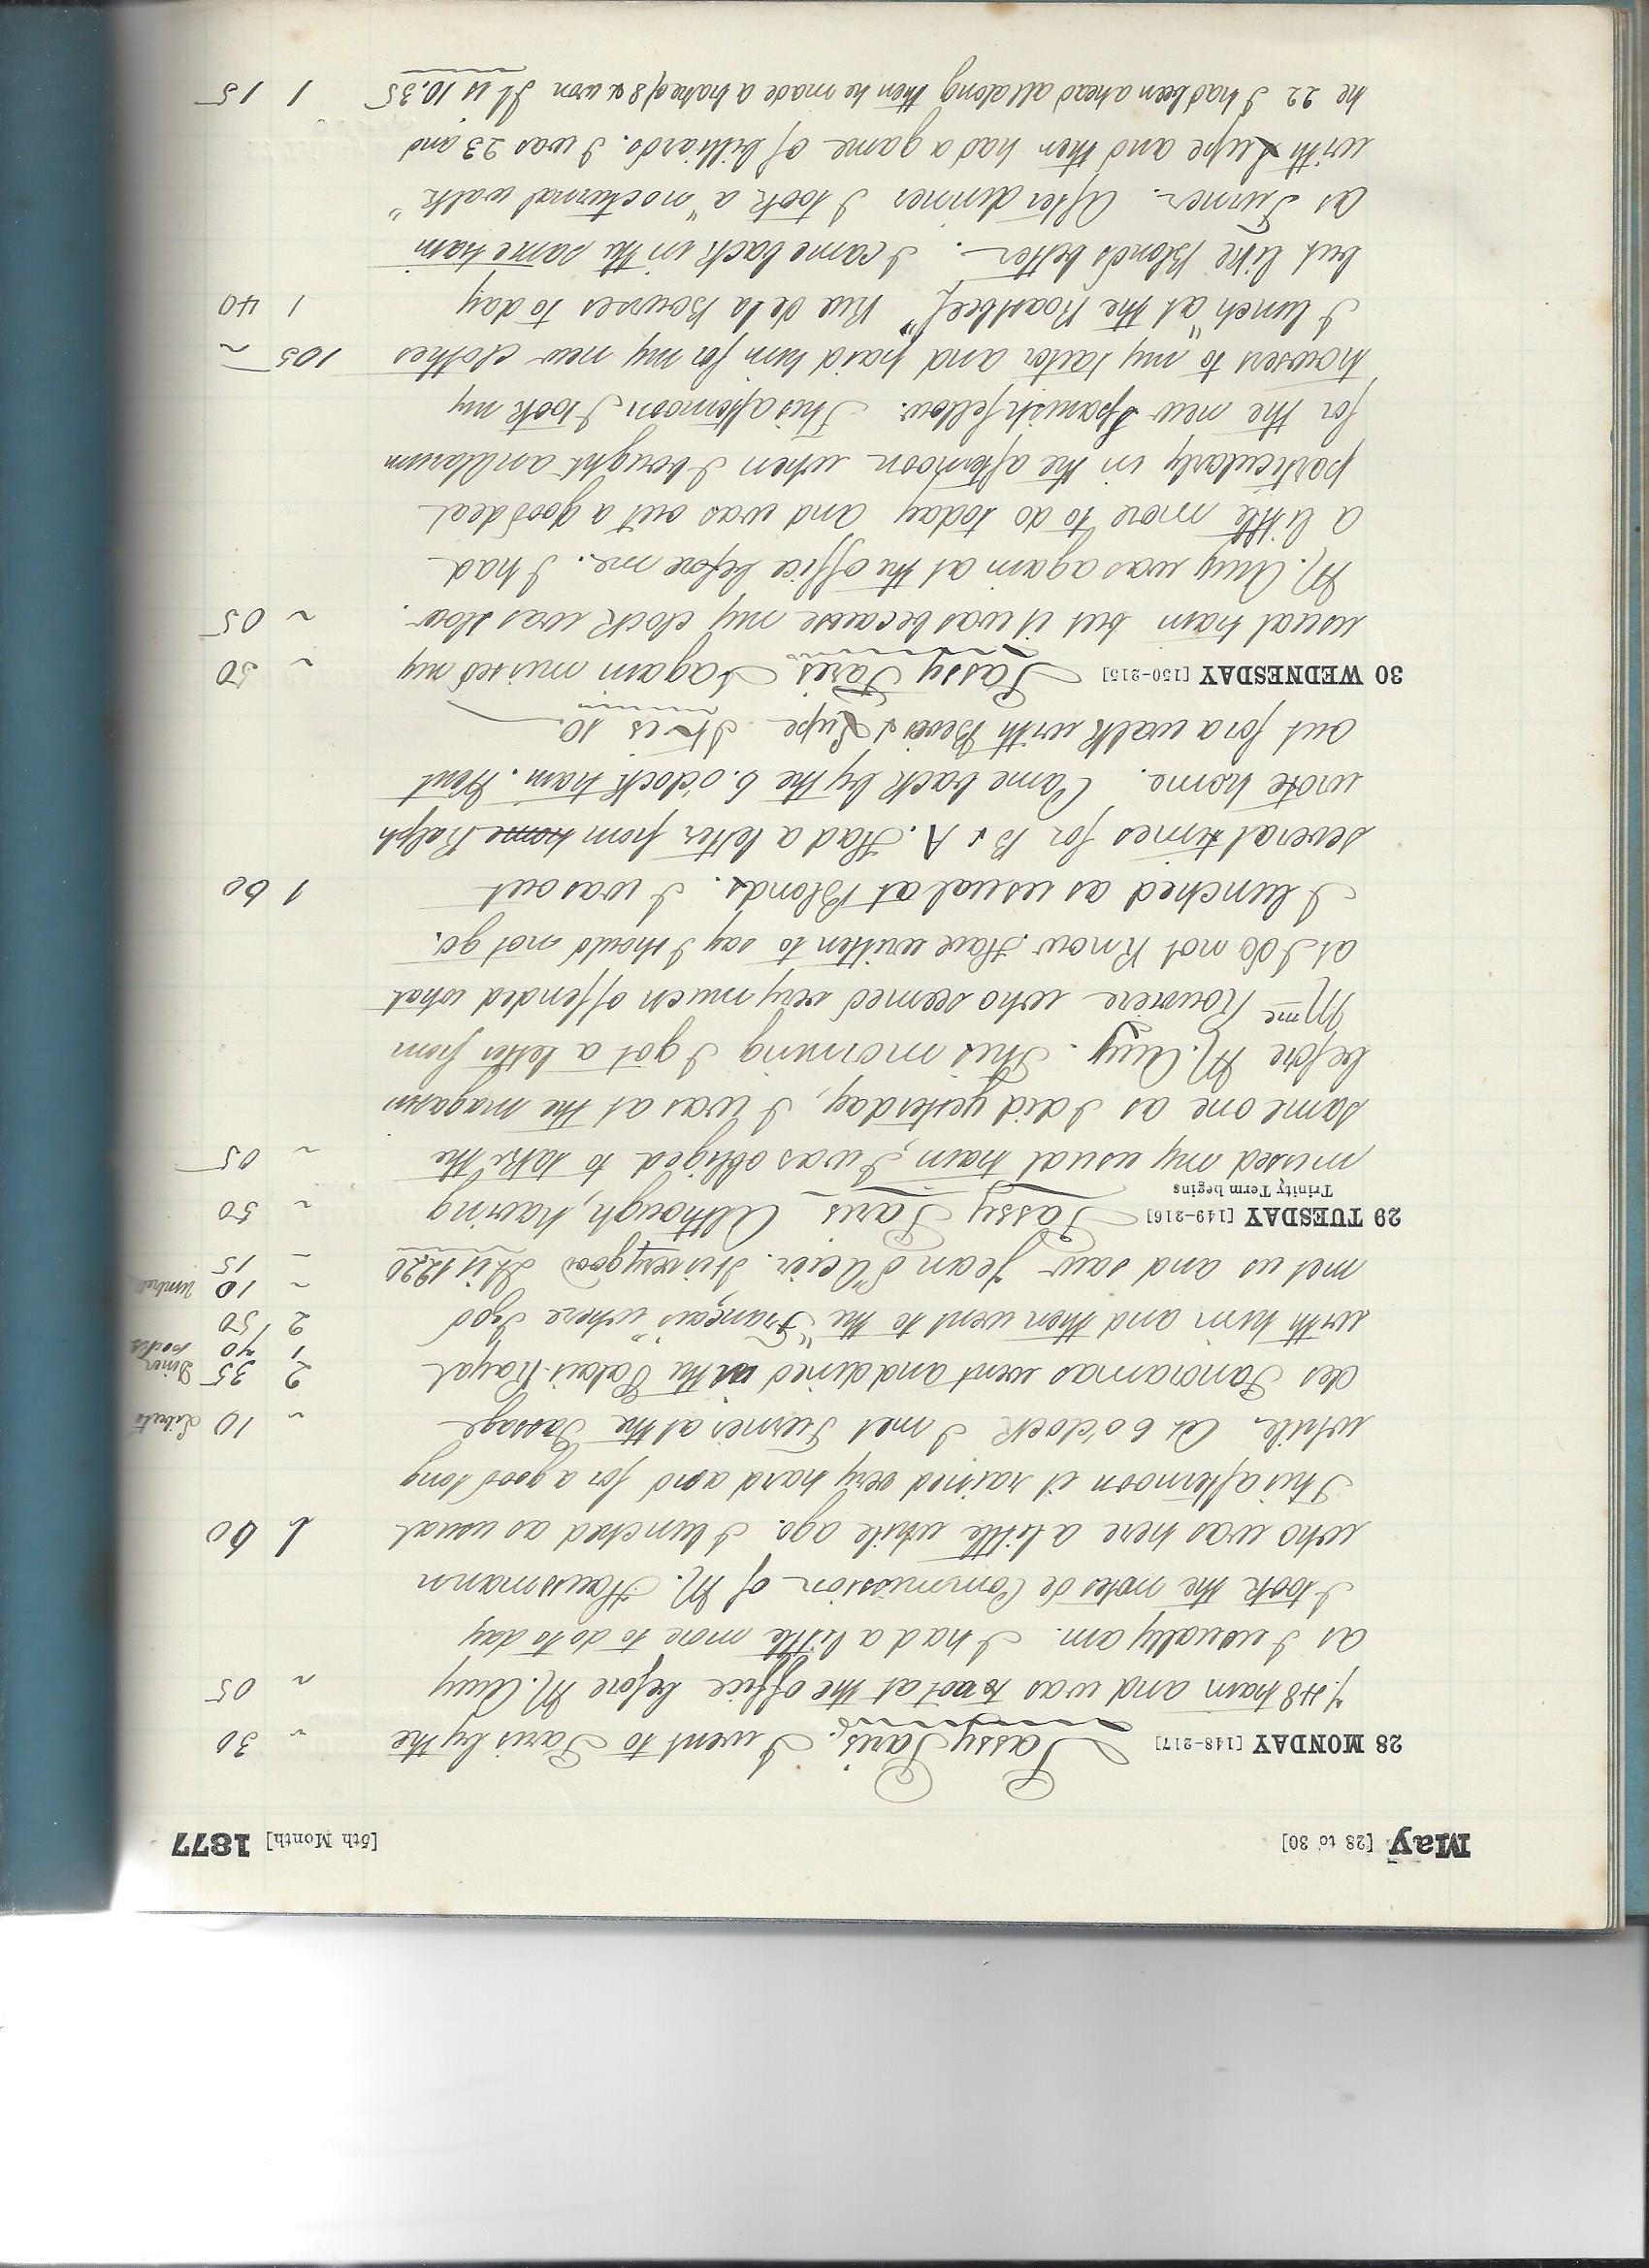 May [28 to 30] [5th Month] 1877
28 MONDAY [148-217] Passy Paris. I went to Paris by the ~ 30
7.48 train and was root at the office before M. Auy ~ 05
as I usually am. I had a little more to do to day
I took the notes de Commission of M. Hausmann
who was here a little while ago. I lunched as usual 1 60
This afternoon it rained very hard and for a good long
while. At 6 o'clock I met Turner at the Passage ~ 10
des Panoramas went and dined at the Palais-Royal 2 35 Diner
1 40
with him and then went to the "Français" where 2 50
~ 10
met us and saw Jean d'Acier. It is very good It is 12.20 ~ 15
29 TUESDAY [149-216] Passy Paris Although, having ~ 50
Trinity Term begins
missed my usual train, I was obliged to take the ~ 05
same one as I did yesterday, I was at the magasin
before M. Auy. This morning I got a letter from
Mme Rouviere who seemed very much offended what
at I do not know. Have written to say I should not go.
I lunched as usual at Blonds. I was out 1 60
several times for B & A. Had a letter from home Ralph
wrote home. Came back by the 6. o'clock train. Went
out for a walk with Beves & Lupe It is 10.
30 WEDNESDAY [150-215] Passy Paris I again missed my ~ 50
usual train but it was because my clock was slow. ~ 05
M. Auy was again at the office before me. I had
a little more to do today and was out a good deal
particularly in the afternoon when I bought
for the new Spanish fellow. This afternoon I took my
trousers to my tailor and paid him for my new clothes 105 ~
I lunch "at the Roastbeef" Rue de la Bourses to day 1 40
but like Blonds better. I came back in the same train
as Turner. After dinner I took a "nocturnal walk"
with Lupe and then had a game of billiards. I was 23 and
he 22 I had been ahead all along then he made a brake of 8 & won It is 10.35 1 15